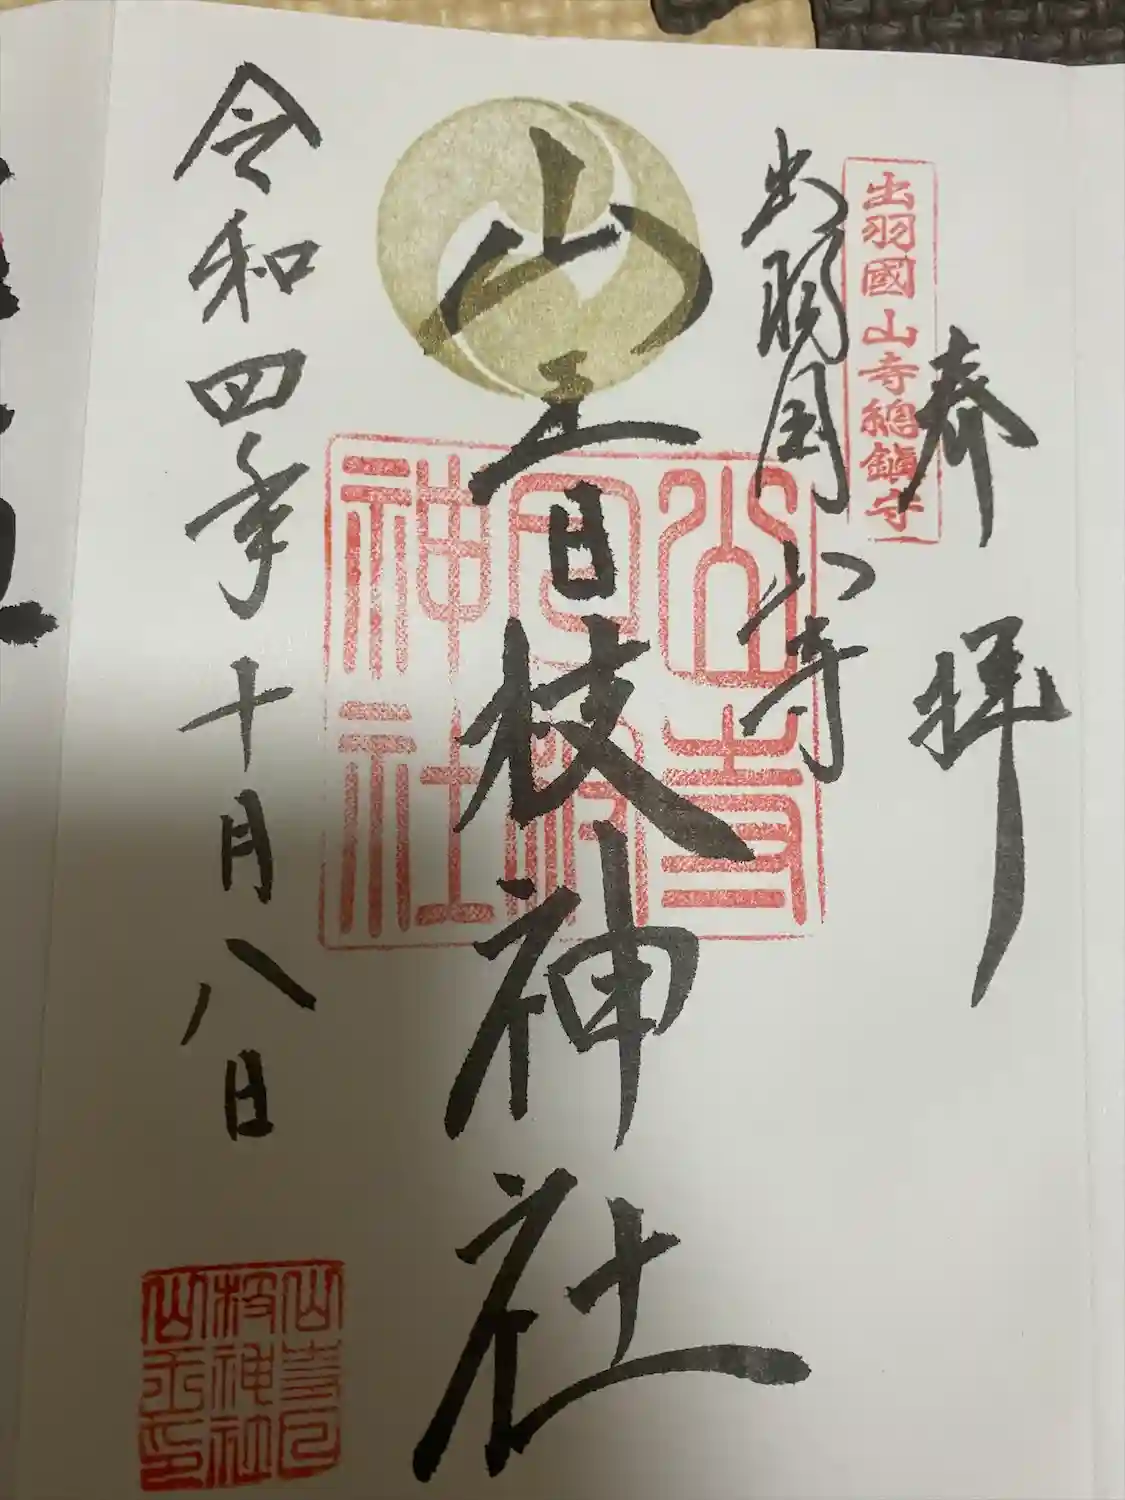 奉拝
出羽國山寺總鎮守
出羽国山寺
山王日枝神社
山寺
日枝
神社
令和四年十月八日
山寺日
枝神社
山王印